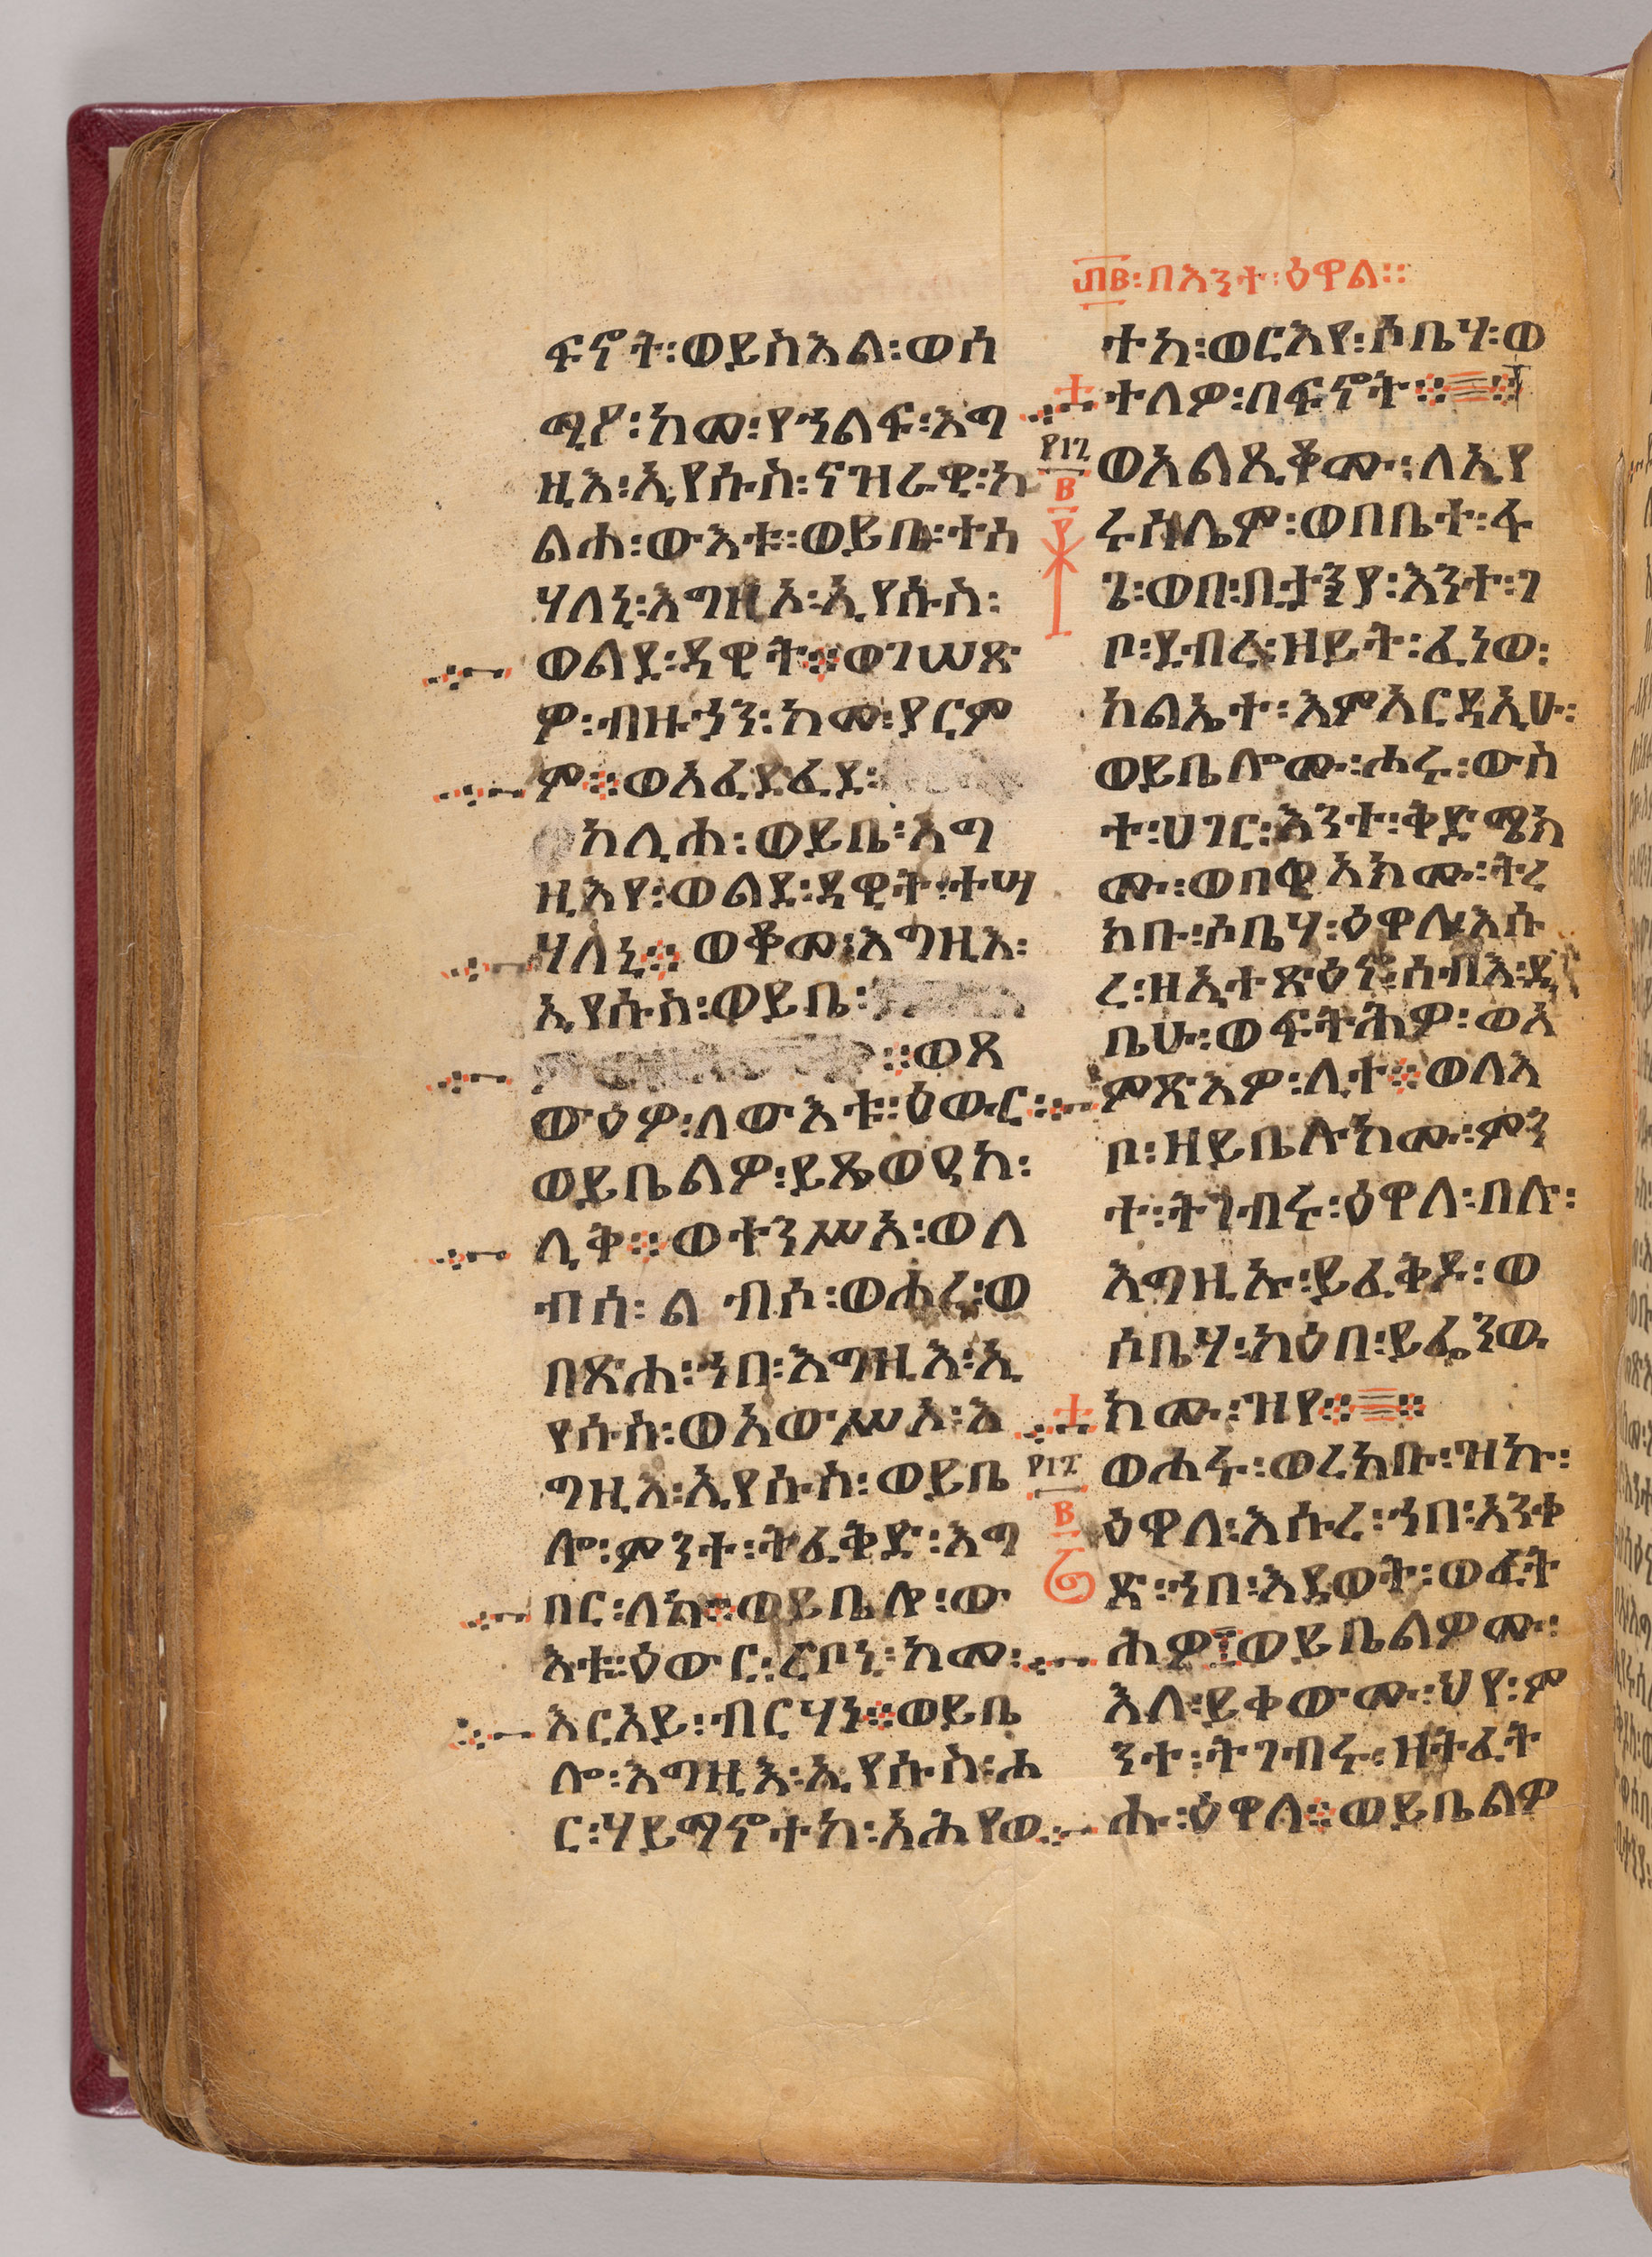 ፴፪፡በእንተ፡ዕዋል፡፡
ፍኖት፡ወይስእል፡ወሰ
ሚዖ፡ከመ፡የኀልፍ፡እግ
ዚእ፡ኢየሱስ፡ናዝራዊ፡ከ
ልሐ፡ውእቱ፡ወይቤ፡ተሠ
ሃለኒ፡እግዚኦ፡ኢየሱስ፡
ወልደ፡ዳዊት።ወገሠጽ
ዎ፡ብዙኃን፡ከመ፡ያርም
ም።ወአፈድፈደ፡
ከሊሐ፡ወይቤ፡እግ
ዚእየ፡ወልደ፡ዳዊት፡ተሣ
ሃለኒ።ወቆመ፡እግዚእ፡
ኢየሱስ፡ወይቤ፡
።ወጸ
ውዕዎ፡ለውእቱ፡ዕውር፡
ወይቤልዎ፡ይጼውዓከ፡
ሊቅ።ወተንሥአ፡ወለ
ብሰ፡ልብሶ፡ወሖረ፡ወ
በጽሐ፡ኀበ፡እግዚእ፡ኢ
የሱስ፡ወአውሥአ፡እ
ግዚእ፡ኢየሱስ፡ወይቤ
ሎ፡ምንተ፡ትፈቅድ፡እግ
በር፡ለከ።ወይቤሎ፡ው
እቱ፡ዕውር፡ረቦኒ፡ከመ፡
እርአይ፡ብርሃነ።ወይቤ
ሎ፡እግዚእ፡ኢየሱስ፡ሐ
ር፡ሃይማኖተከ፡አሕየወ
ተከ፡ወርእየ፡ሶቤሃ፡ወ
ተለዎ፡በፍኖት።
ወአልጺቆሙ፡ለኢየ
ሩሳሌም፡ወበቤተ፡ፋ
ጌ፡ወበ፡ቢታንያ፡እንተ፡ገ
ቦ፡ደብረ፡ዘይት፡ፈነወ፡
ክልኤተ፡እምአርዳኢሁ፡
ወይቤሎሙ፡ሑሩ፡ውስ
ተ፡ሀገር፡እንተ፡ቅድሜክ
ሙ፡ወበዊአክሙ፡ትረ
ክቡ፡ሶቤሃ፡ዕዋለ፡እሱ
ረ፡ዘኢተጽዕነ፡ሰብእ፡ዲ
ቤሁ፡ወፍትሕዎ፡ወአ
ምጽእዎ፡ሊተ።ወለእ
ቦ፡ዘይቤለክሙ፡ምን
ተ፡ትገብሩ፡ዕዋለ፡በሉ፡
እግዚኡ፡ይፈቅዶ፡ወ
ሶቤሃ፡ካዕበ፡ይፌንወ
ክሙ፡ዝየ።
ወሖሩ፡ወረከቡ፡ዝኩ፡
ዕዋለ፡እሱረ፡ኀበ፡አንቀ
ጽ፡ኀበ፡እደወት፡ወፈት
ሕዎ።ወይቤልዎሙ፡
እለ፡ይቀውሙ፡ህየ፡ም
ንተ፡ትገብሩ፡ዘትፈት
ሑ፡ዕዋለ።ወይቤልዎ